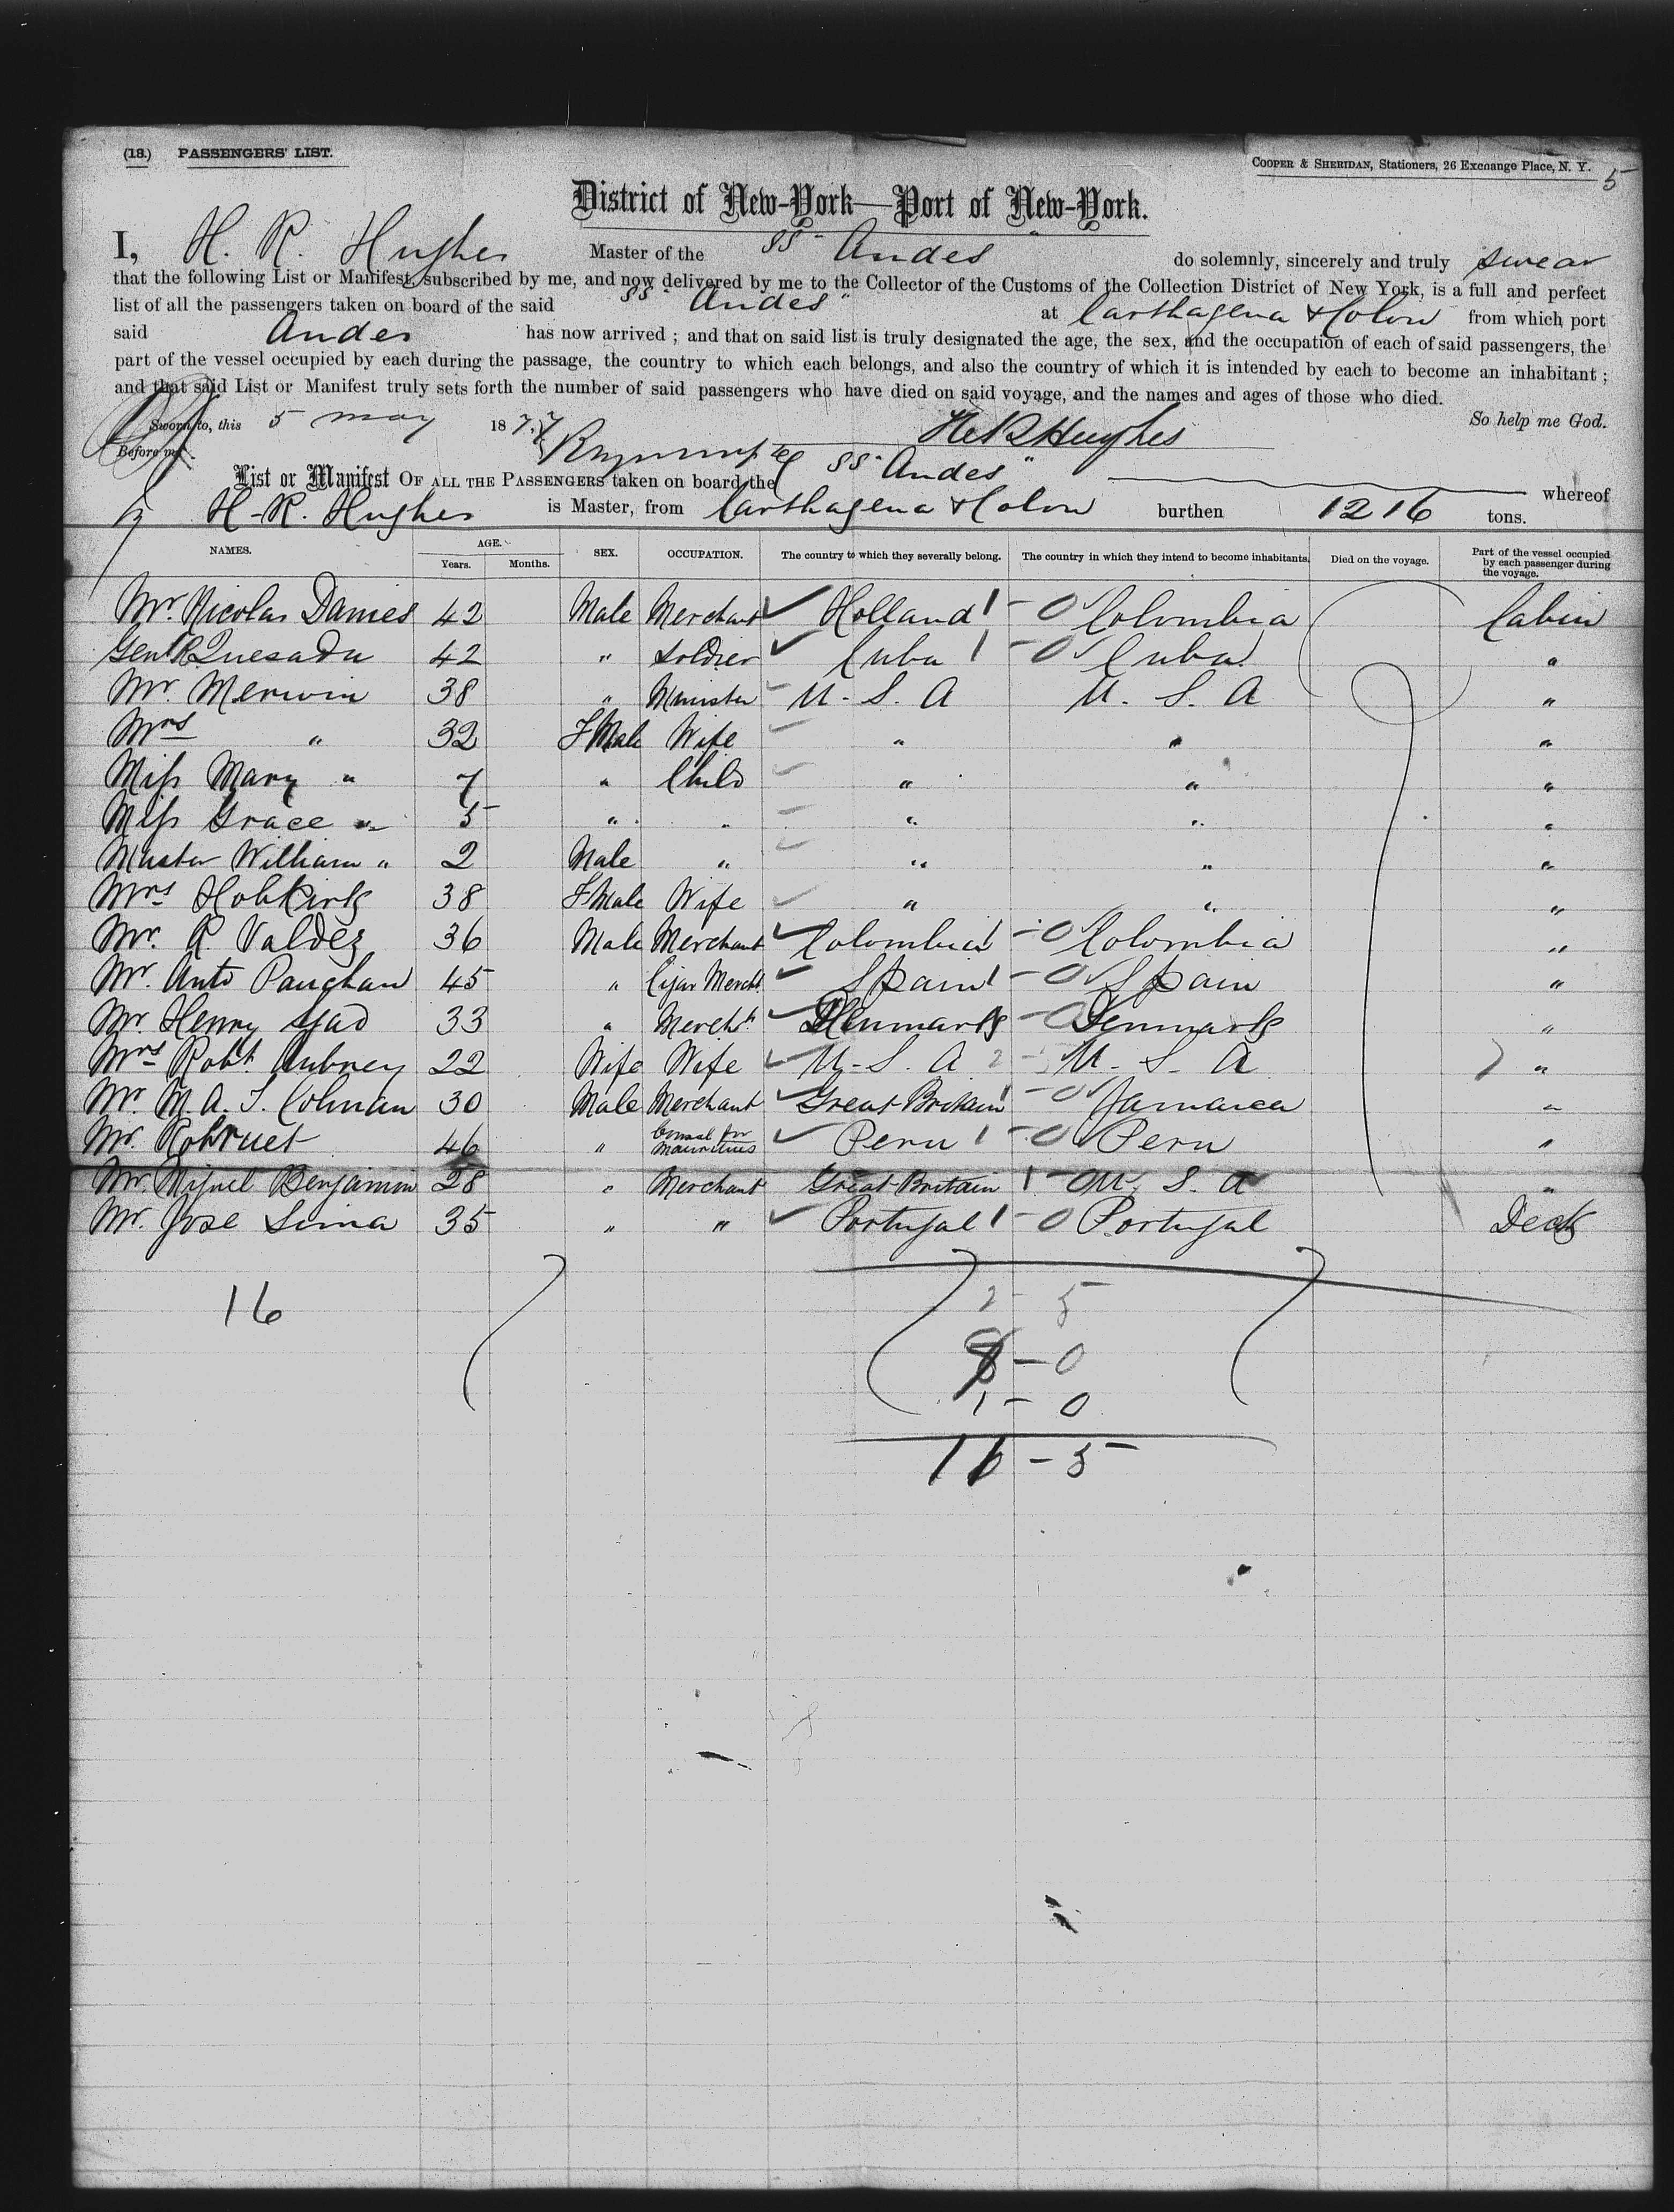 (18.) PASSENGERS' LIST.
COOPER & SHERIDAN, Stationers, 26 Exchange Place, N. Y.
5
District of New-York—Port of New-York.
I, H. R. Hughes Master of the SS "Andes" do solemnly, sincerely and truly swear
that the following List or Manifest, subscribed by me, and now delivered by me to the Collector of the Customs of the Collection District of New York, is a full and perfect
list of all the passengers taken on board of the said SS "Andes" at Carthagena & Colon from which port
said Andes has now arrived ; and that on said list is truly designated the age, the sex, and the occupation of each of said passengers, the
part of the vessel occupied by each during the passage, the country to which each belongs, and also the country of which it is intended by each to become an inhabitant ;
and that said List or Manifest truly sets forth the number of said passengers who have died on said voyage, and the names and ages of those who died.
Sworn to, this 5 may 1877 So help me God.
Before me HRHughes
List or Manifest OF ALL THE PASSENGERS taken on board the SS "Andes" whereof
H. R. Hughes is Master, from Carthagena & Colon burthen 1216 tons.
NAMES. AGE. Years. Months. SEX. OCCUPATION. The country to which they severally belong. The country in which they intend to become inhabitants. Died on the voyage. Part of the vessel occupied by each passenger during the voyage.
Mr. Nicolas Danies 42 Male Merchant Holland 1 - 0 Colombia Cabin
Genl R Quesada 42 " Soldier Cuba 1 - 0 Cuba "
Mr. Merwin 38 " Minister U. S. A U. S. A "
Mrs " 32 FMale Wife " " "
Miss Mary " 7 " Child " " "
Miss Grace " 5 " " " " "
Master William " 2 Male " " " "
Mrs Hobkirk 38 FMale Wife " " "
Mr. R Valdez 36 Male Merchant Colombia 1 - 0 Colombia "
Mr. Anto Paughan 45 " Cigar Mercht. Spain 1 - 0 Spain "
Mr. Henry Gad 33 " Mercht. Denmark - 0 Denmark "
Mrs Robt. Aubrey 22 Wife Wife U. S. A 2 - U. S. A "
Mr. M. A. S. Colman 30 Male Merchant Great Britain 1 - 0 Jamaica "
Mr. Robruet 46 " Consul for Mauritius Peru 1 - 0 Peru "
Mr. Miguel Benjamin 28 " Merchant Great Britain 1 - 0 U. S. A "
Mr. Jose Lima 35 " " Portugal 1 - 0 Portugal Deck
16
2 5
8 - 0
1 - 0
16 - 5